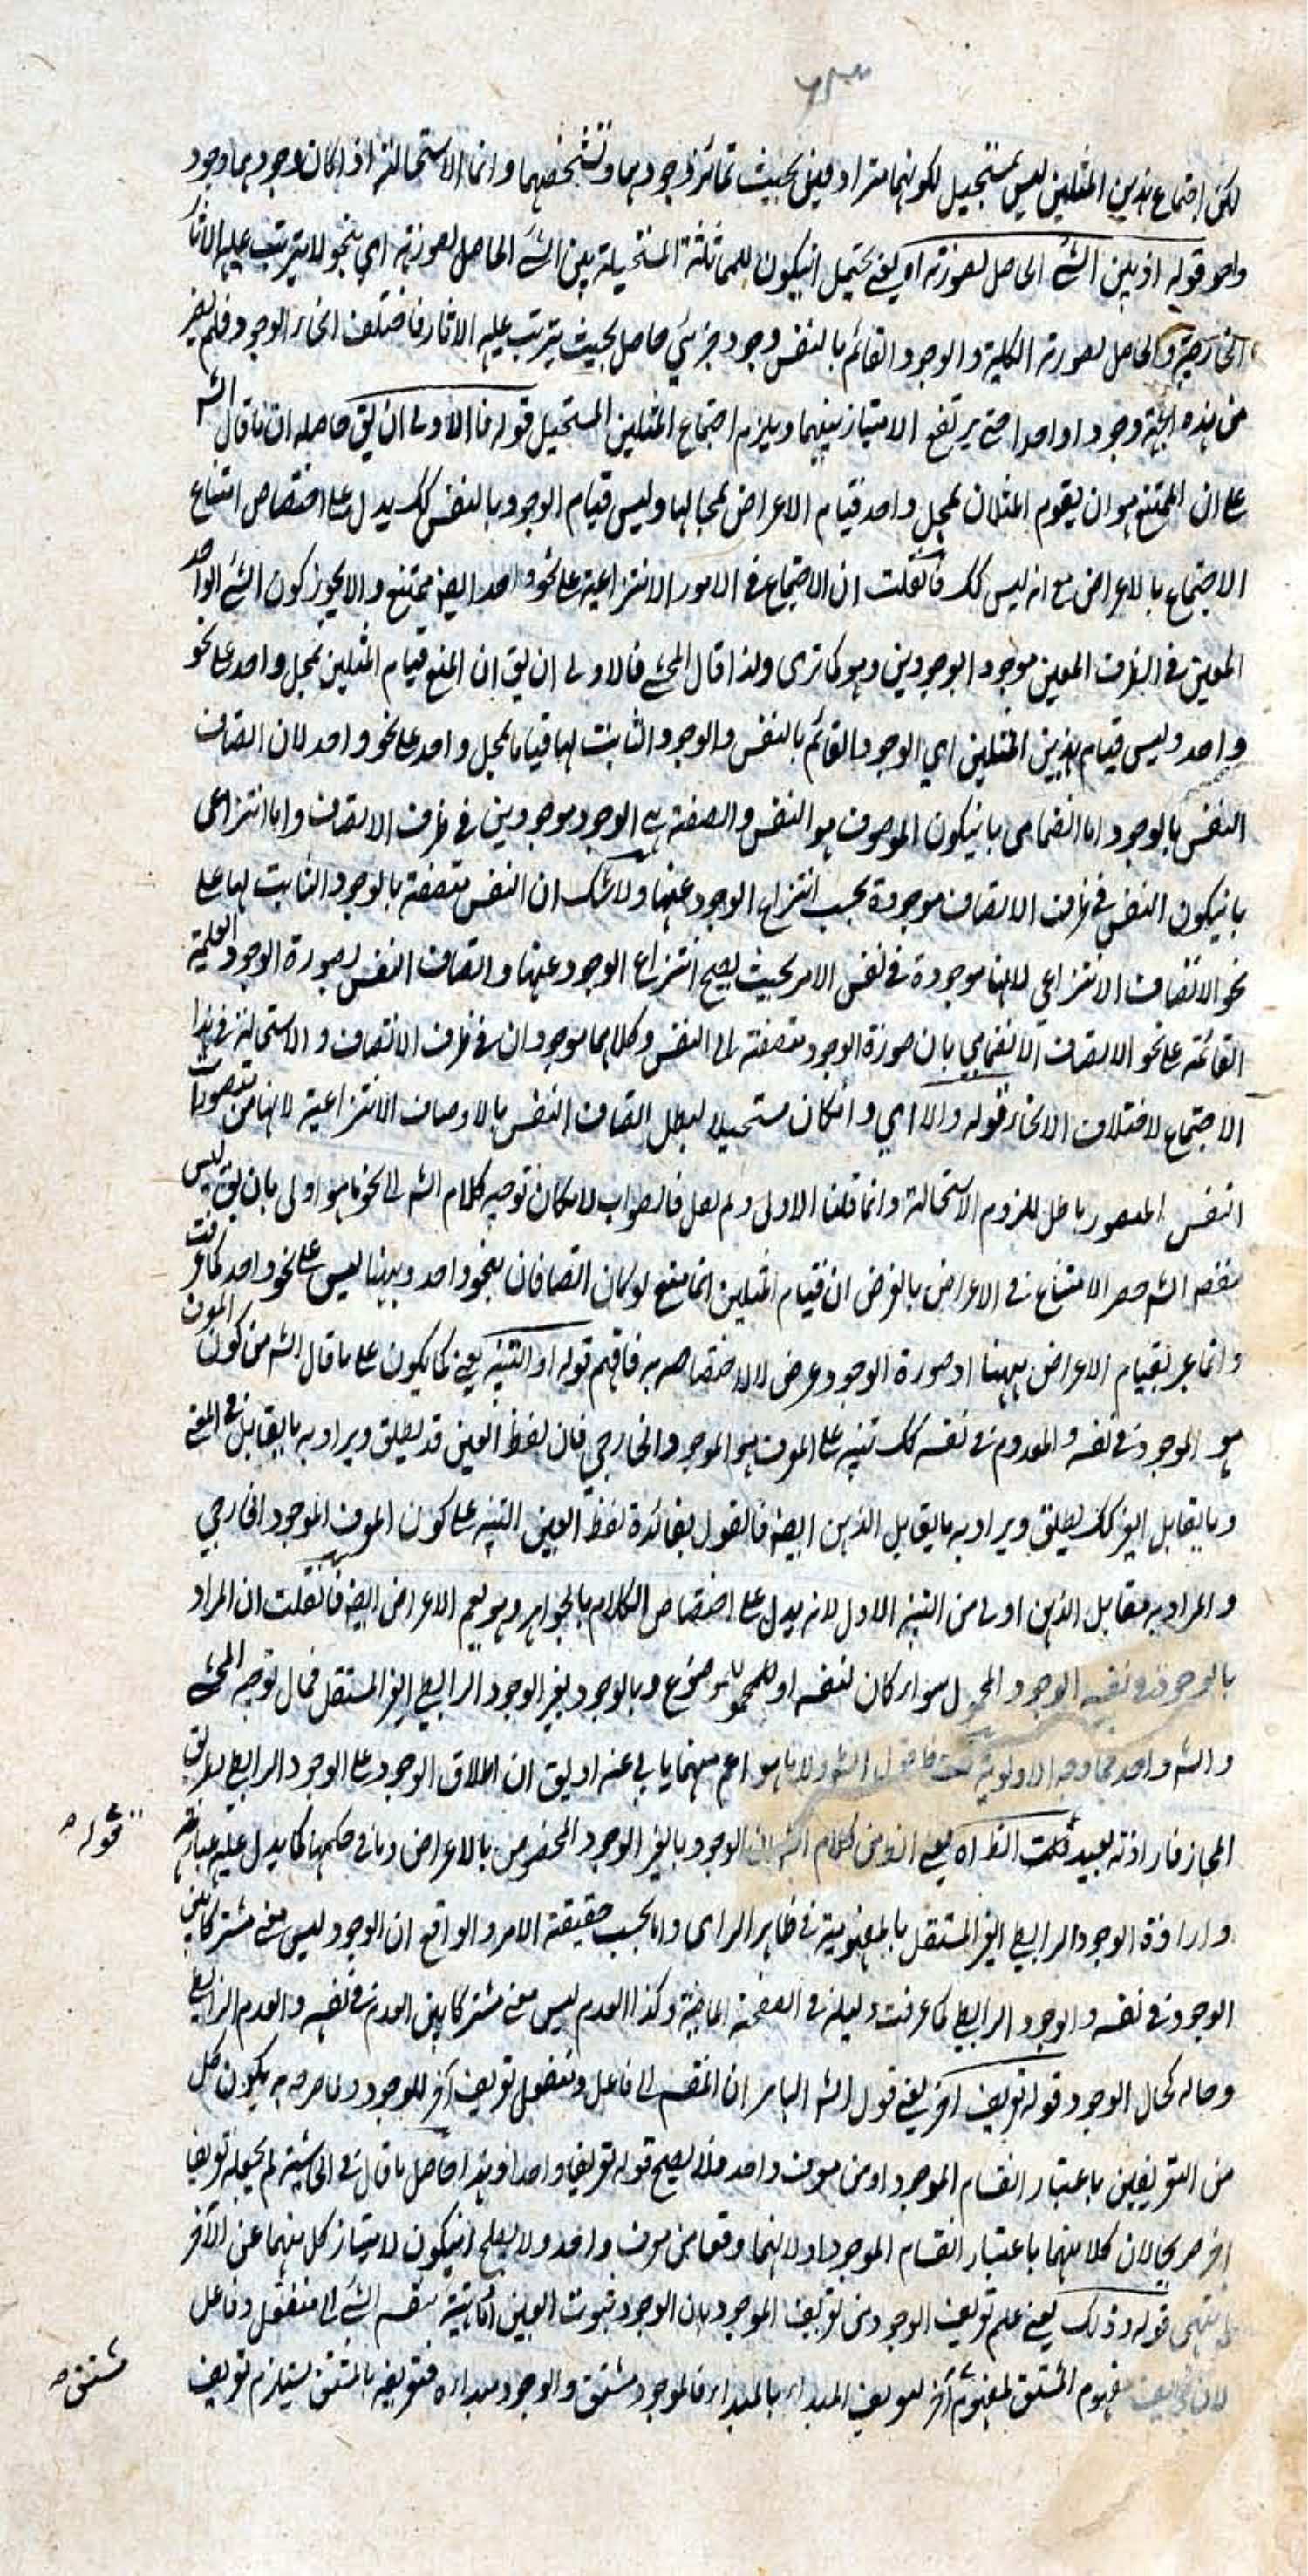 لكن اجتماع هذين المثلين ليس بمستحيل لكونهما مترادفين بحيث تمايز وجودهما وتشخصهما وانما الاستحالة اذا كان وجودهما وجود
واحد قوله اذ بين الشئ الحاصل بصورته اه يعني يحتمل انيكون للمماثلة المستحيلة بين الشئ الحاصل بصورته اي بنحو لا يترتب عليه الاثار
الخارجية والحاصل بصورته الكلية والوجود القائم بالنفس وجود جزئي حاصل بحيث يترتب عليه الاثار فاختلف انحاء الوجود فلم يصر
من هذه الجهة وجودا واحدا حتى يرتفع الامتياز بينهما ويلزم اجتماع المثلين المستحيل قوله فالاولى ان يق حاصله ان ما قال الشـ
على ان الممتنع هو ان يقوم المثلان بمحل واحد قيام الاعراض بمحالها وليس قيام الوجود بالنفس كك يدل على اختصاص امتناع
الاجتماع بالاعراض مع انه ليس كك فانقلت ان الاجتماع في الامور الانتزاعية على نحو واحد ايضا ممتنع والا يجوز كون الشئ الواحد
المعين في الظرف المعين موجود ابوجودين وهو كما ترى ولذا قال المحشى فالاولى ان يق ان المنع قيام المثلين بمحل واحد على نحو
واحد وليس قيام هذين المثلين اي الوجود القائم بالنفس والوجود الثابت لها قياما بمحل واحد على نحو واحد لان اتصاف
النفس بالوجود اما انضمامى بانيكون الموصوف هو النفس والصفة هي الوجود موجودين في ظرف الاتصاف واما انتزاعى
بانيكون النفس في ظرف الاتصاف موجودة بحسب انتزاع الوجود عنها ولا شك ان النفس متصفة بالوجود الثابت لها على
نحو الاتصاف الانتزاعى لانها موجودة في نفس الامر بحيث يصح انتزاع الوجود عنها واتصاف النفس بصورة الوجود العلمية
القائمة على نحو الاتصاف الانضمامي بان صورة الوجود منضمة الى النفس وكلاهما موجودان في ظرف الاتصاف والاستحالة في هذا
الاجتماع لاختلاف الانحاء قوله والا اي وانكان مستحيلا لبطل اتصاف النفس بالاوصاف الانتزاعية لانها من متصورات
النفس المتصور باطل للزوم الاستحالة وانما قلنا الاولى ولم نقل فالصواب لامكان توجيه كلام الشـ الى نحو ما هو اولى بان يق ليس
مقصد الشـ حصر الامتناع في الاعراض بالغرض ان قيام المثلين انما يمنع لو كان اتصافان بنحو واحد وههنا ليس على نحو واحد كما عرفت
وانما عبر بقيام الاعراض ههنا اذ صورة الوجود عرض لا لاختصاصه به فافهم قوله او التنبيه يعني كما يكون على ما قال الشـ من كون المعرف
هو الموجود في نفسه والمعدوم في نفسه كك تنبيه على المعرف هو الموجود الخارجي فان لفظ العين قد يطلق ويراد به ما يقابل في المعنى
وما يقابل الغير كك يطلق ويراد به ما يقابل الذهن ايضا فالقول بفائدة لفظ العين التنبيه على كون المعرف الموجود الخارجي
والمراد به مقابل الذهن اولى من التنبيه الاول لانه يدل على اختصاص الكلام بالجواهر وهو يعم الاعراض ايضا فانقلت ان المراد
بالوجود في نفسه الوجود المحمول سواء كان لنفسه او للموضوع وبالوجود بغير الوجود الرابطي الغير المستقل فمال توجيه المحشى
والشـ واحد فما وجه الاولوية قلت اعم منهما يابى عنه او يق ان اطلاق الوجود على الوجود الرابطي بطريق
المجاز فارادته بعيد قلت الظ اه يعني ان من كلام الشـ ان الوجود بالغير الوجود المخصوص بالاعراض وما في حكمها كما يدل عليه عبارته
وارادة الوجود الرابطي الغير المستقل بالمفهومية في ظاهر الراى واما بحسب حقيقة الامر والواقع ان الوجود ليس معنى مشتركا بين
الوجود في نفسه والوجود الرابطي كما عرفت دليله في الصفحة الماضية وكذا العدم ليس معنى مشتركا بين العدم في نفسه والعدم الرابطي
وحاله كحال الوجود قوله تعريف آخر يعني قول الشـ ان المنقسم الى فاعل ومنفعل تعريف آخر للوجود به يكون كل
من التعريفين باعتبار انقسام الموجود او من معرف واحد فلا يصح قوله تعريفا واحدا وهذا حاصل ما قال في الحاشية لم يجعله تعريفا
اخر صريحا لان كلا منهما باعتبار انقسام الموجود اولا لانهما وقعا من معرف واحد ولا يصلح انيكون لامتياز كل منهما عن الآخر
انتهى قوله وذلك يعني علم تعريف الوجود من تعريف الموجود بان الوجود ثبوت العين امكانية ينقسم الشئ الى منفعل وفاعل
لان تعريف مفهوم المشتق بمفهوم آخر تعريف المبداء بالمبداء فالموجود مشتق والوجود مبداءه فتعريفه بالمشتق يستلزم تعريف
قوله
مشتق